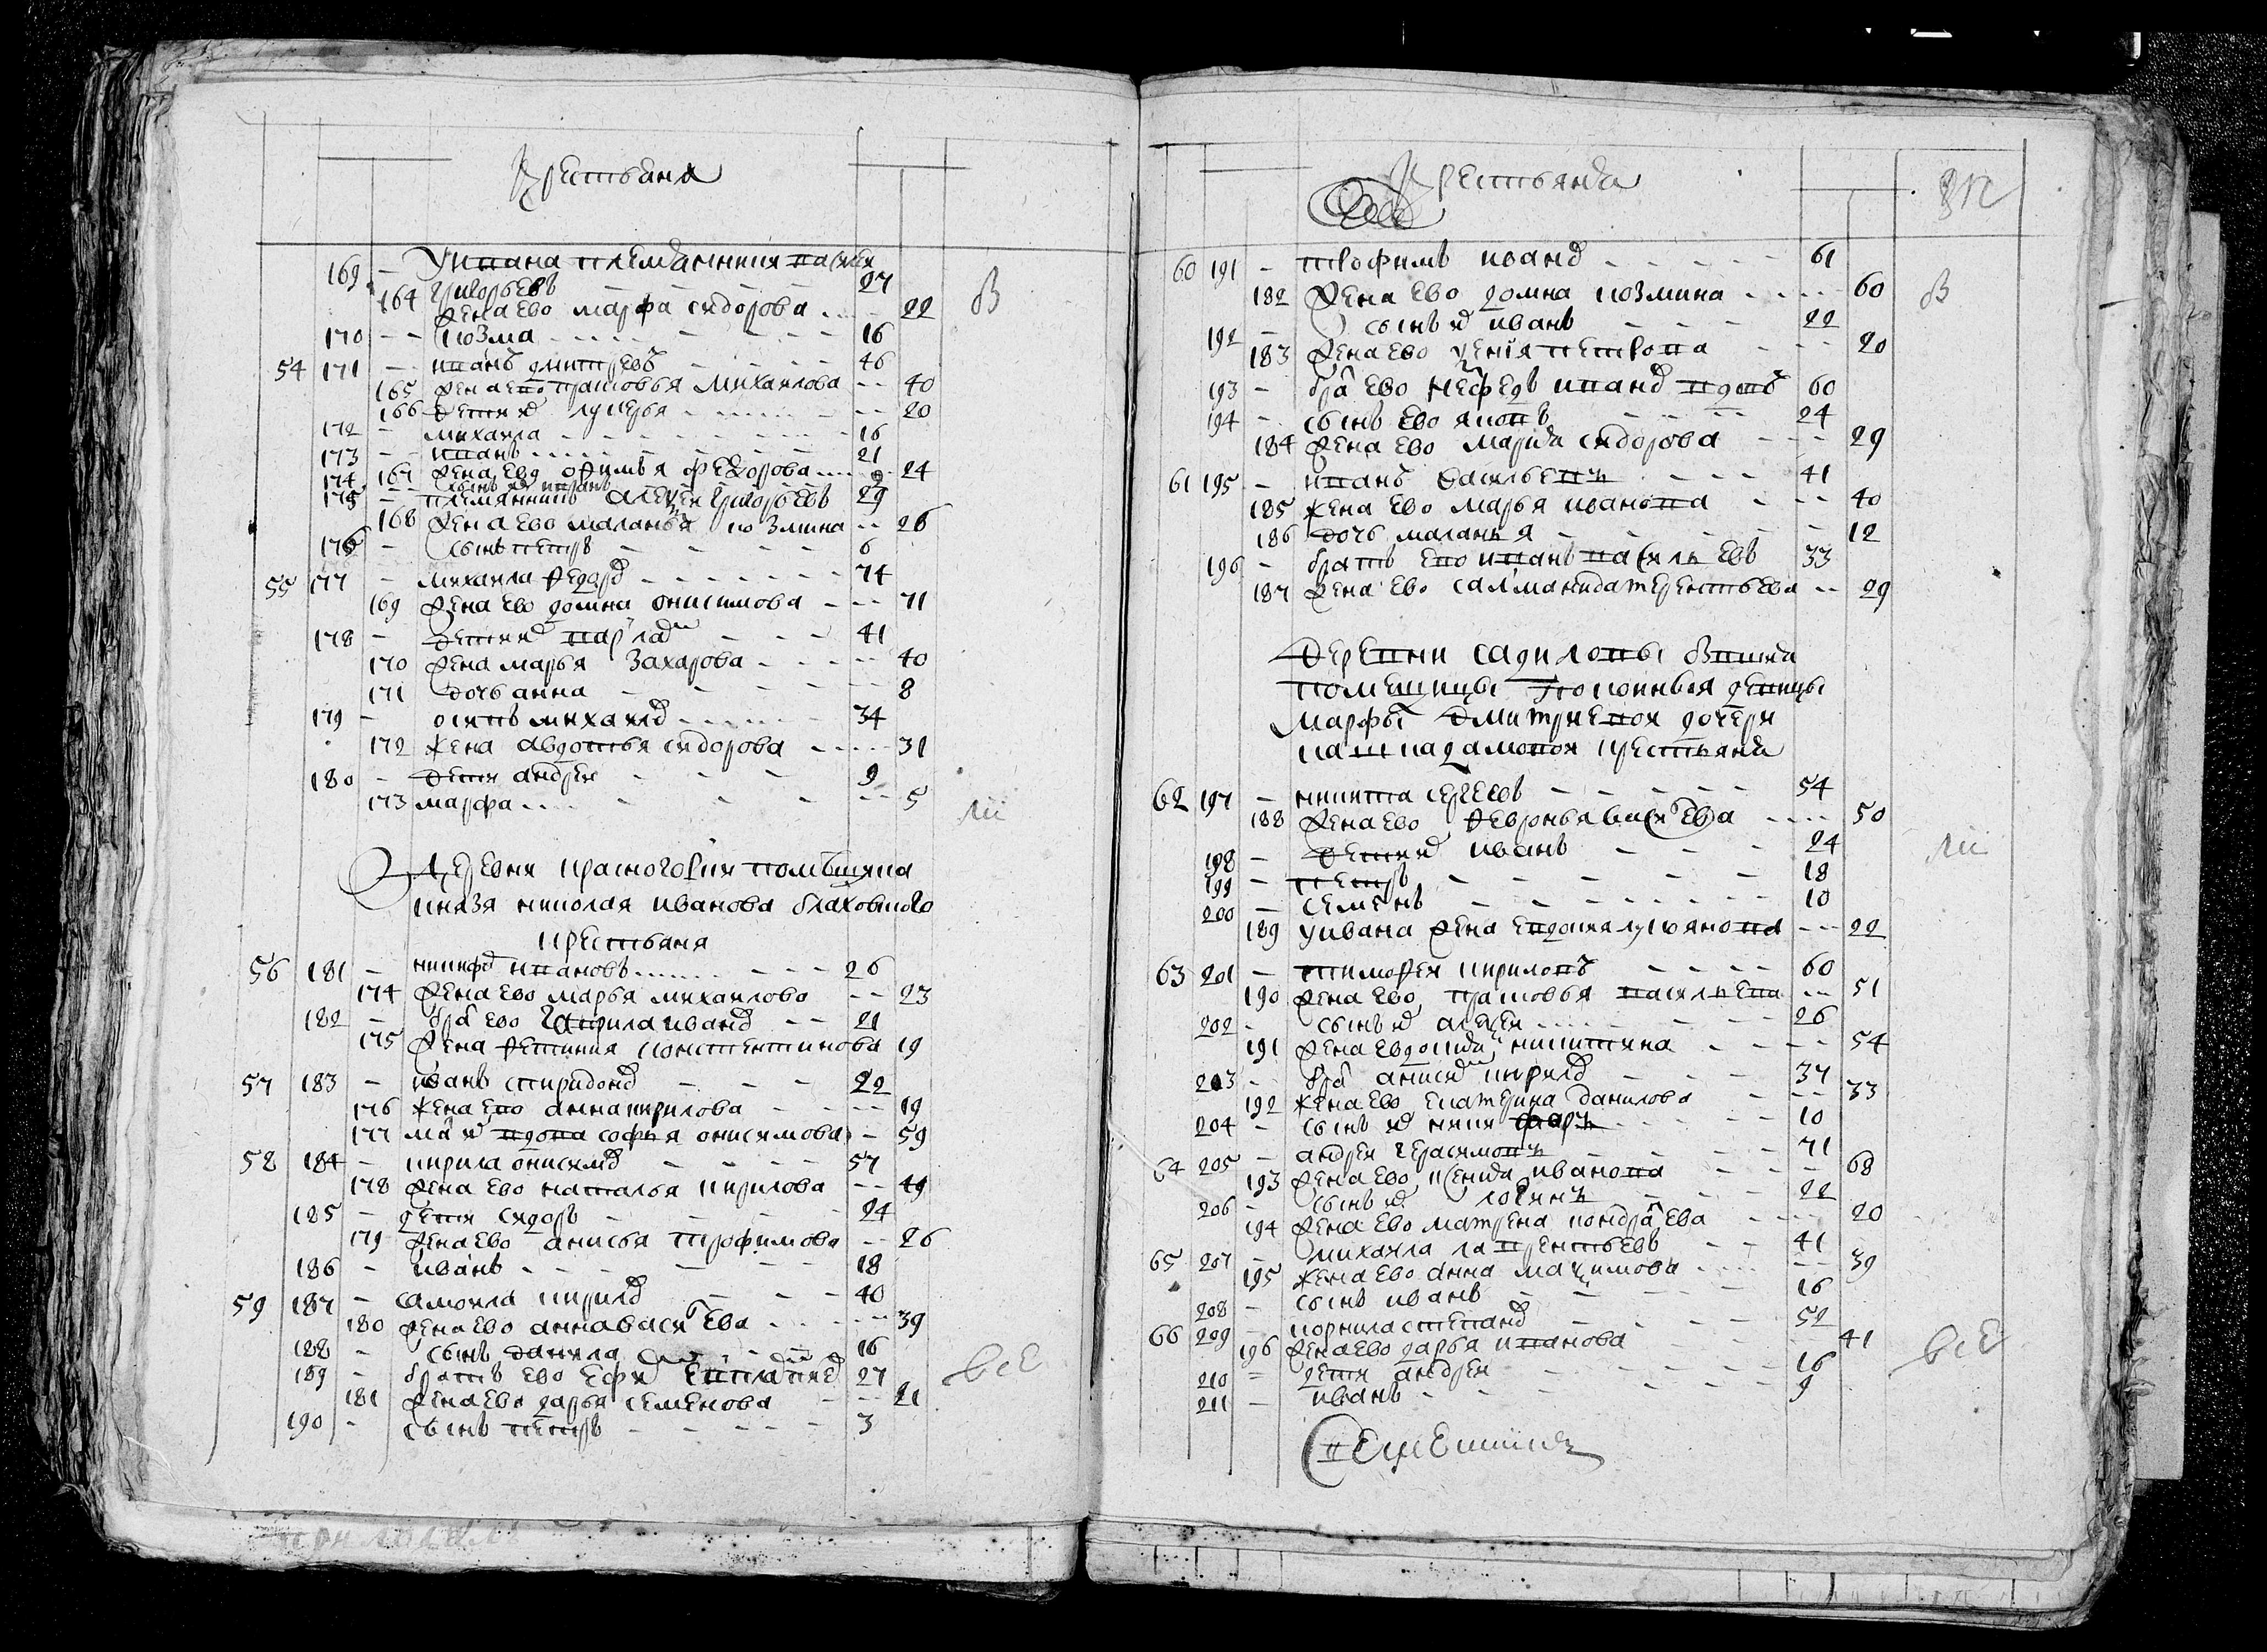 Крестьяня
169 — У ивана племянникъ василей
григорьевъ — — — 27
164 жена ево марфа сидорова . . . 22
170 — — козма . . . . — — — 16
54 171 — иванъ дмитревъ — — — 46
165 жена ево прасковья михаилова — — 40
166 дети их лукерья . . . . . — — 20
172 — михаила — — — — — 16
173 — — иванъ . . . . — — — 21
167 жена ево офимья федорова . . . . 24
174 — — сынъ их иванъ 9
175 — — племянникъ алексеи григорьевъ 29
168 жена ево маланья козмина — — 26
176 — сынъ петръ — — — — 6
55 177 — михаила федоро — — — — 74
169 жена ево домна онисимова — — — 71
178 — дети их — — — 41
170 жена марья захарова — — — — 40
171 дочь анна — — — — — 8
179 — осипъ михаило . . . . — — 34
172 жена авдотья сидорова — — . . . 31
180 — дети андреи — — — 9
173 марфа . . . — — — — 5
Деревни красногорки помѣщика
князя николая иванова
крестьяня
56 181 — никифо ивановъ . . . . . — — — 26
174 жена ево марья михаилова — — 23
182 — бра ево гаврила ивано — — 21
175 жена фетиния констентинова 19
57 183 — иванъ спиридоно — — — 22
176 жена ево анна кирилова — — — 19
177 ма их вдова софья онисимова — 59
58 184 — кирила онисимо — — — — 57
178 жена ево наталья кирилова — — 49
185 — дети сидоръ — — — — 24
179 жена ево анисья трофимова — — 26
186 — иванъ — — — — — — 18
59 187 — самоила кирило — — — 40
180 жена ево анна васи ева — — . . . 39
188 — сынъ данила — — 16
189 — братъ ево 27
181 жена ево дарья семенова — — — 21
190 — сынъ петръ — — — — 3
Крестьянѣ
60 191 — трофимъ ивано — — — — — 61
182 жена ево домна козмина . . . . . 60
192 — сынъ их иванъ — — — 22
183 жена ево петрова — — — 20
193 — бра ево нефедъ ивано вдовъ 60
194 — сынъ ево яковъ — — — 24
184 жена ево марья сидорова — — — 29
61 195 — иванъ васильевъ . — — — 41
185 жена ево марья иванова — — — 40
186 дочь маланья — — — — 12
196 — братъ ево иванъ васильевъ 33
187 жена ево салманида терентьева — — 29
деревни садиловы
помещицы девицы
марфы дмитриевой дочери
крестьяня
62 197 — никита сергеевъ — — — — — 54
188 жена ево февронья васи ева . . . . 50
198 — дети их иванъ — — — 24
199 — петръ — — — — — — 18
200 — семенъ — — — — — — — 10
189 у ивана жена евдокия лукоянова — — — 22
63 201 — тимофеи кириловъ — — — — 60
190 жена ево прасковья васильева — — 51
202 — сынъ их алексеи . . . . . — — — 26
191 жена евдокия никитина — — — — 54
203 — бра аниси кирило — — — 37
192 жена ево екатерина данилова — — — 33
204 — сынъ их никифоръ . . . . — — 10
64 205 — андреи герасимовъ — — — — 71
193 жена ево ксения иванова — — — 68
206 — сынъ их логинъ — — — 22
194 жена ево матрена кондра ева — . . . 20
65 207 — михаила лаврентьевъ — — 41
195 жена ево анна максимова . . . . — — 39
208 — сынъ иванъ — — — — 16
66 209 — корнила степано — — — — 52
196 жена ево дарья иванова — — 41
210 = дети андреи — — — — 16
211 — иванъ — — — — — 9